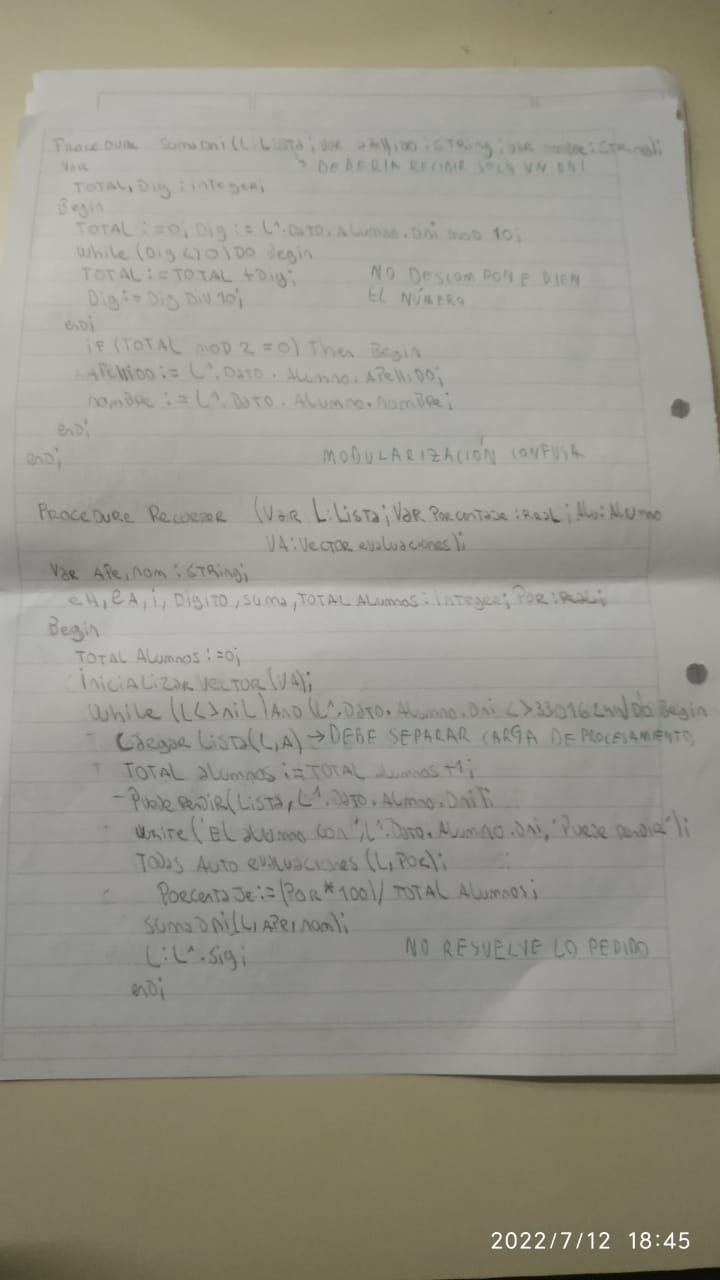 Procedure SumaDni (L:Lista; var apellido:string; var nombre:string);
var → DEBERIA RECIBIR SOLO UN DNI
TOTAL, Dig : integer;
Begin
TOTAL :=0; Dig := L^.Dato.Alumno.Dni mod 10;
while (Dig <> 0) DO Begin
TOTAL := TOTAL + Dig; NO DESCOMPONE BIEN
Dig := Dig Div 10; EL NÚMERO
end;
if (TOTAL mod 2 = 0) Then Begin
Apellido := L^.Dato.Alumno.Apellido;
nombre := L^.Dato.Alumno.nombre;
end;
end; MODULARIZACIÓN CONFUSA
Procedure Recorrer (Var L:Lista; Var Porcentaje:Real; Alu:Alumno
VA:Vector evaluaciones);
Var Ape, nom : String;
i, Digito, suma, TOTAL Alumos : Integer; Por:Real;
Begin
TOTAL Alumnos :=0;
inicializar vector (VA);
While (L<>nil) And (L^.Dato.Alumno.Dni <> 33016244) do Begin
Cargar Lista(L,A) → DEBE SEPARAR CARGA DE PROCESAMIENTO
TOTAL alumnos := TOTAL alumnos +1;
- Puede Rendir(Lista, L^.Dato.Almno.Dni);
write ('El alumno con', L^.Dato.Alumno.Dni, 'Puede rendir');
Todas Auto evaluaciones (L, Por);
Porcentaje := (Por * 100) / TOTAL Alumnos;
Suma Dni(L, Ape, nom);
L:L^.Sig; NO RESUELVE LO PEDIDO
end;
2022/7/12 18:45